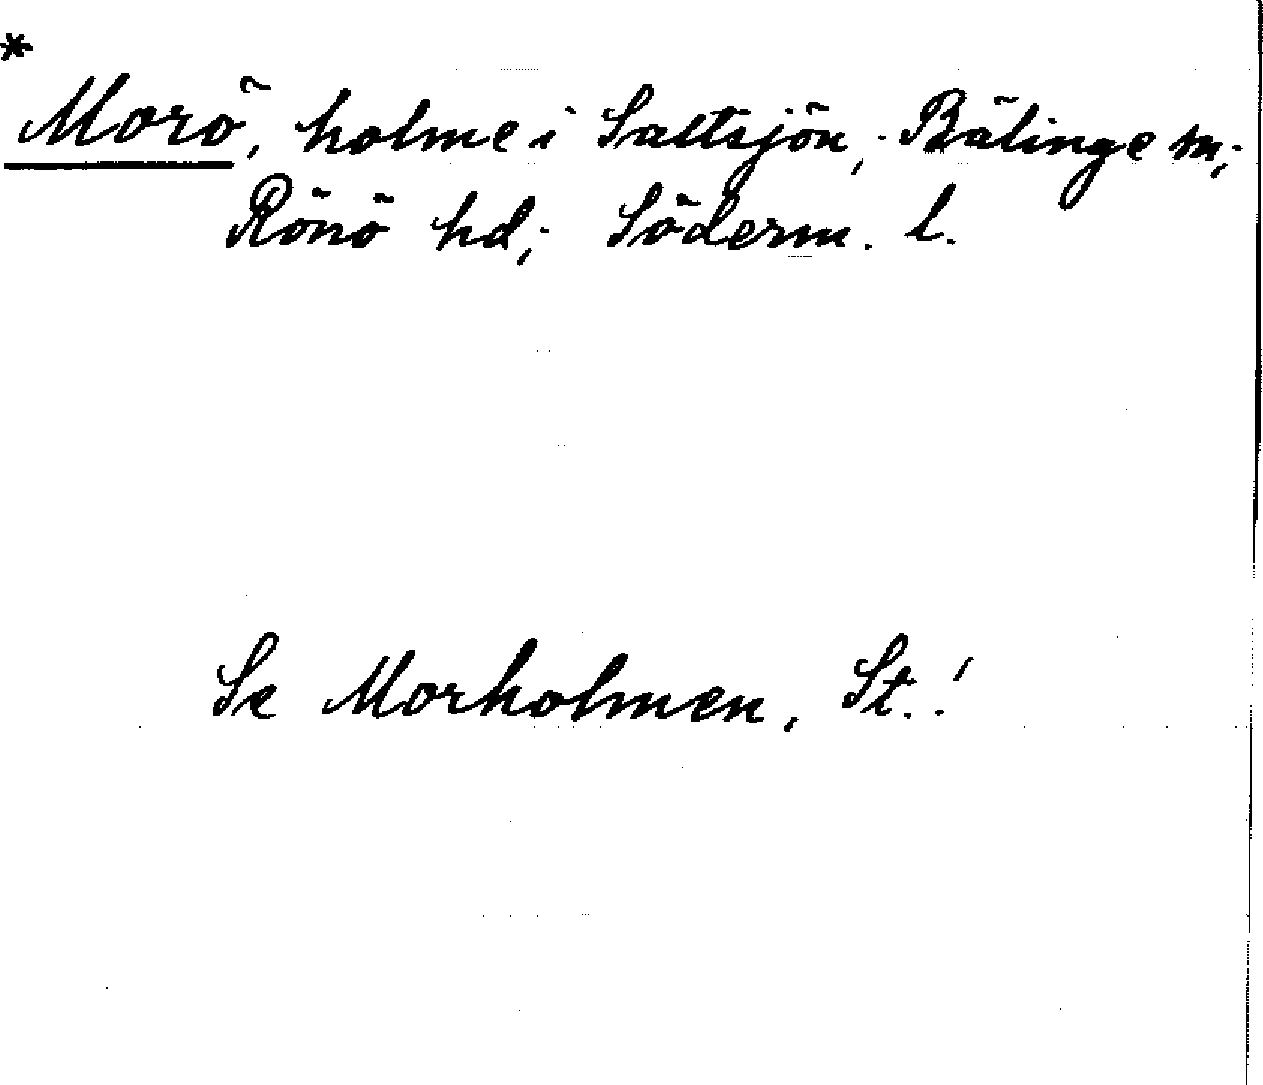 *
Morö, holme i Saltsjön; Bälinge sn;
Rönö hd; Söderm. l.
Se Morholmen, St.!